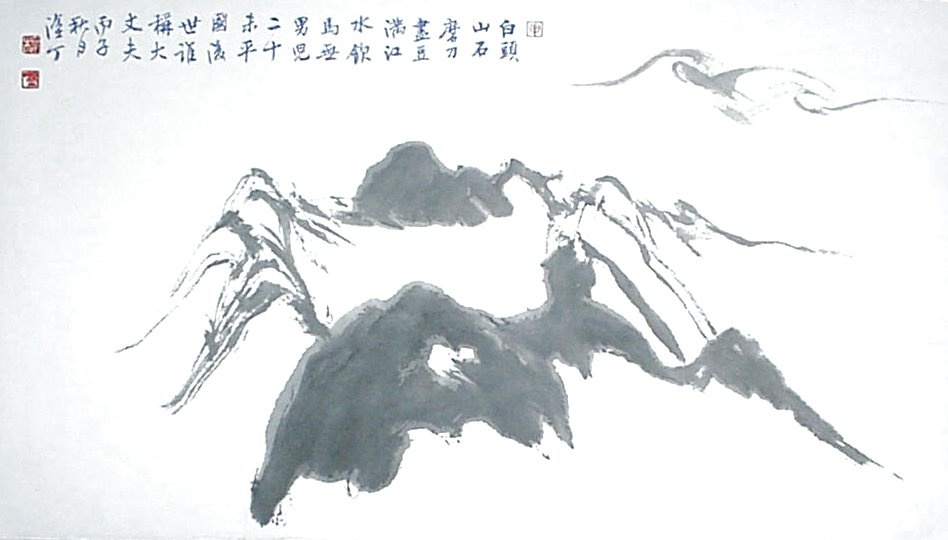 白頭
山石
磨刀
盡豆
滿江
水飲
馬無
男児
二十
未平
國後
世誰
稱大
丈夫
丙子
秋月